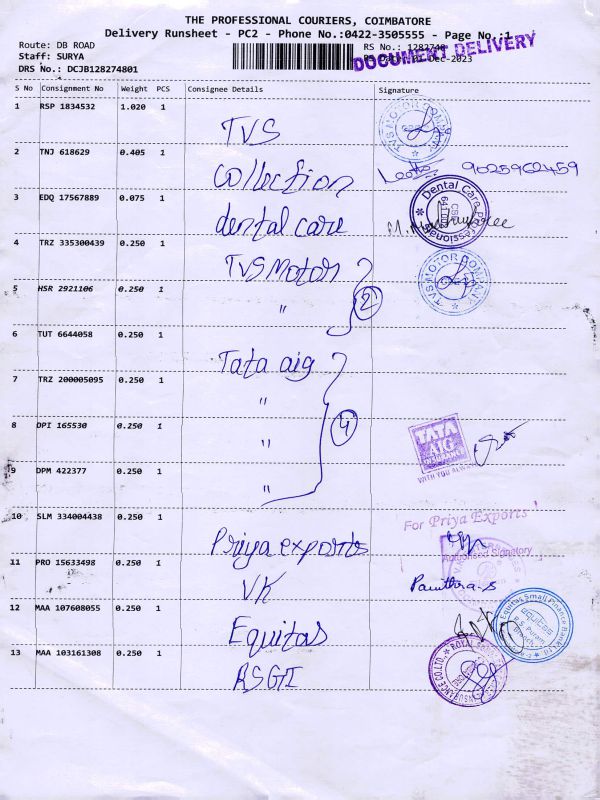 THE PROFESSIONAL COURIERS, COIMBATORE
Delivery Runsheet - PC2 - Phone No.:0422-3505555 - Page No.:1
Route: DB ROAD
Staff: SURYA
DRS No.: DCJB128274801
RS No.: 1282748
Dec-2023
DOCUMENT DELIVERY
S No Consignment No Weight PCS Consignee Details Signature
1 RSP 1834532 1.020 1 TVS
TVS MOTOR COMPANY
2 TNJ 618629 0.405 1 Collection 9025962459
3 EDQ 17567889 0.075 1 dental care
Dental Care Professionals
4 TRZ 335300439 0.250 1 TVS Motor
TVS MOTOR COMPANY
5 HSR 2921106 0.250 1 " 2
6 TUT 6644058 0.250 1 Tata aig
7 TRZ 200005095 0.250 1 "
8 DPI 165530 0.250 1 " 4
TATA AIG
INSURANCE
WITH YOU ALWAYS
9 DPM 422377 0.250 1 "
10 SLM 334004438 0.250 1 Priya exports
For Priya Exports
Authorised Signatory
11 PRO 15633498 0.250 1 VK Pavithra.S
12 MAA 107608055 0.250 1 Equitas
Equitas Small Finance Bank Ltd
equitas
R.S. Puram
Branch
13 MAA 103161308 0.250 1 RSGI
ROYAL INSURANCE CO.LTD.